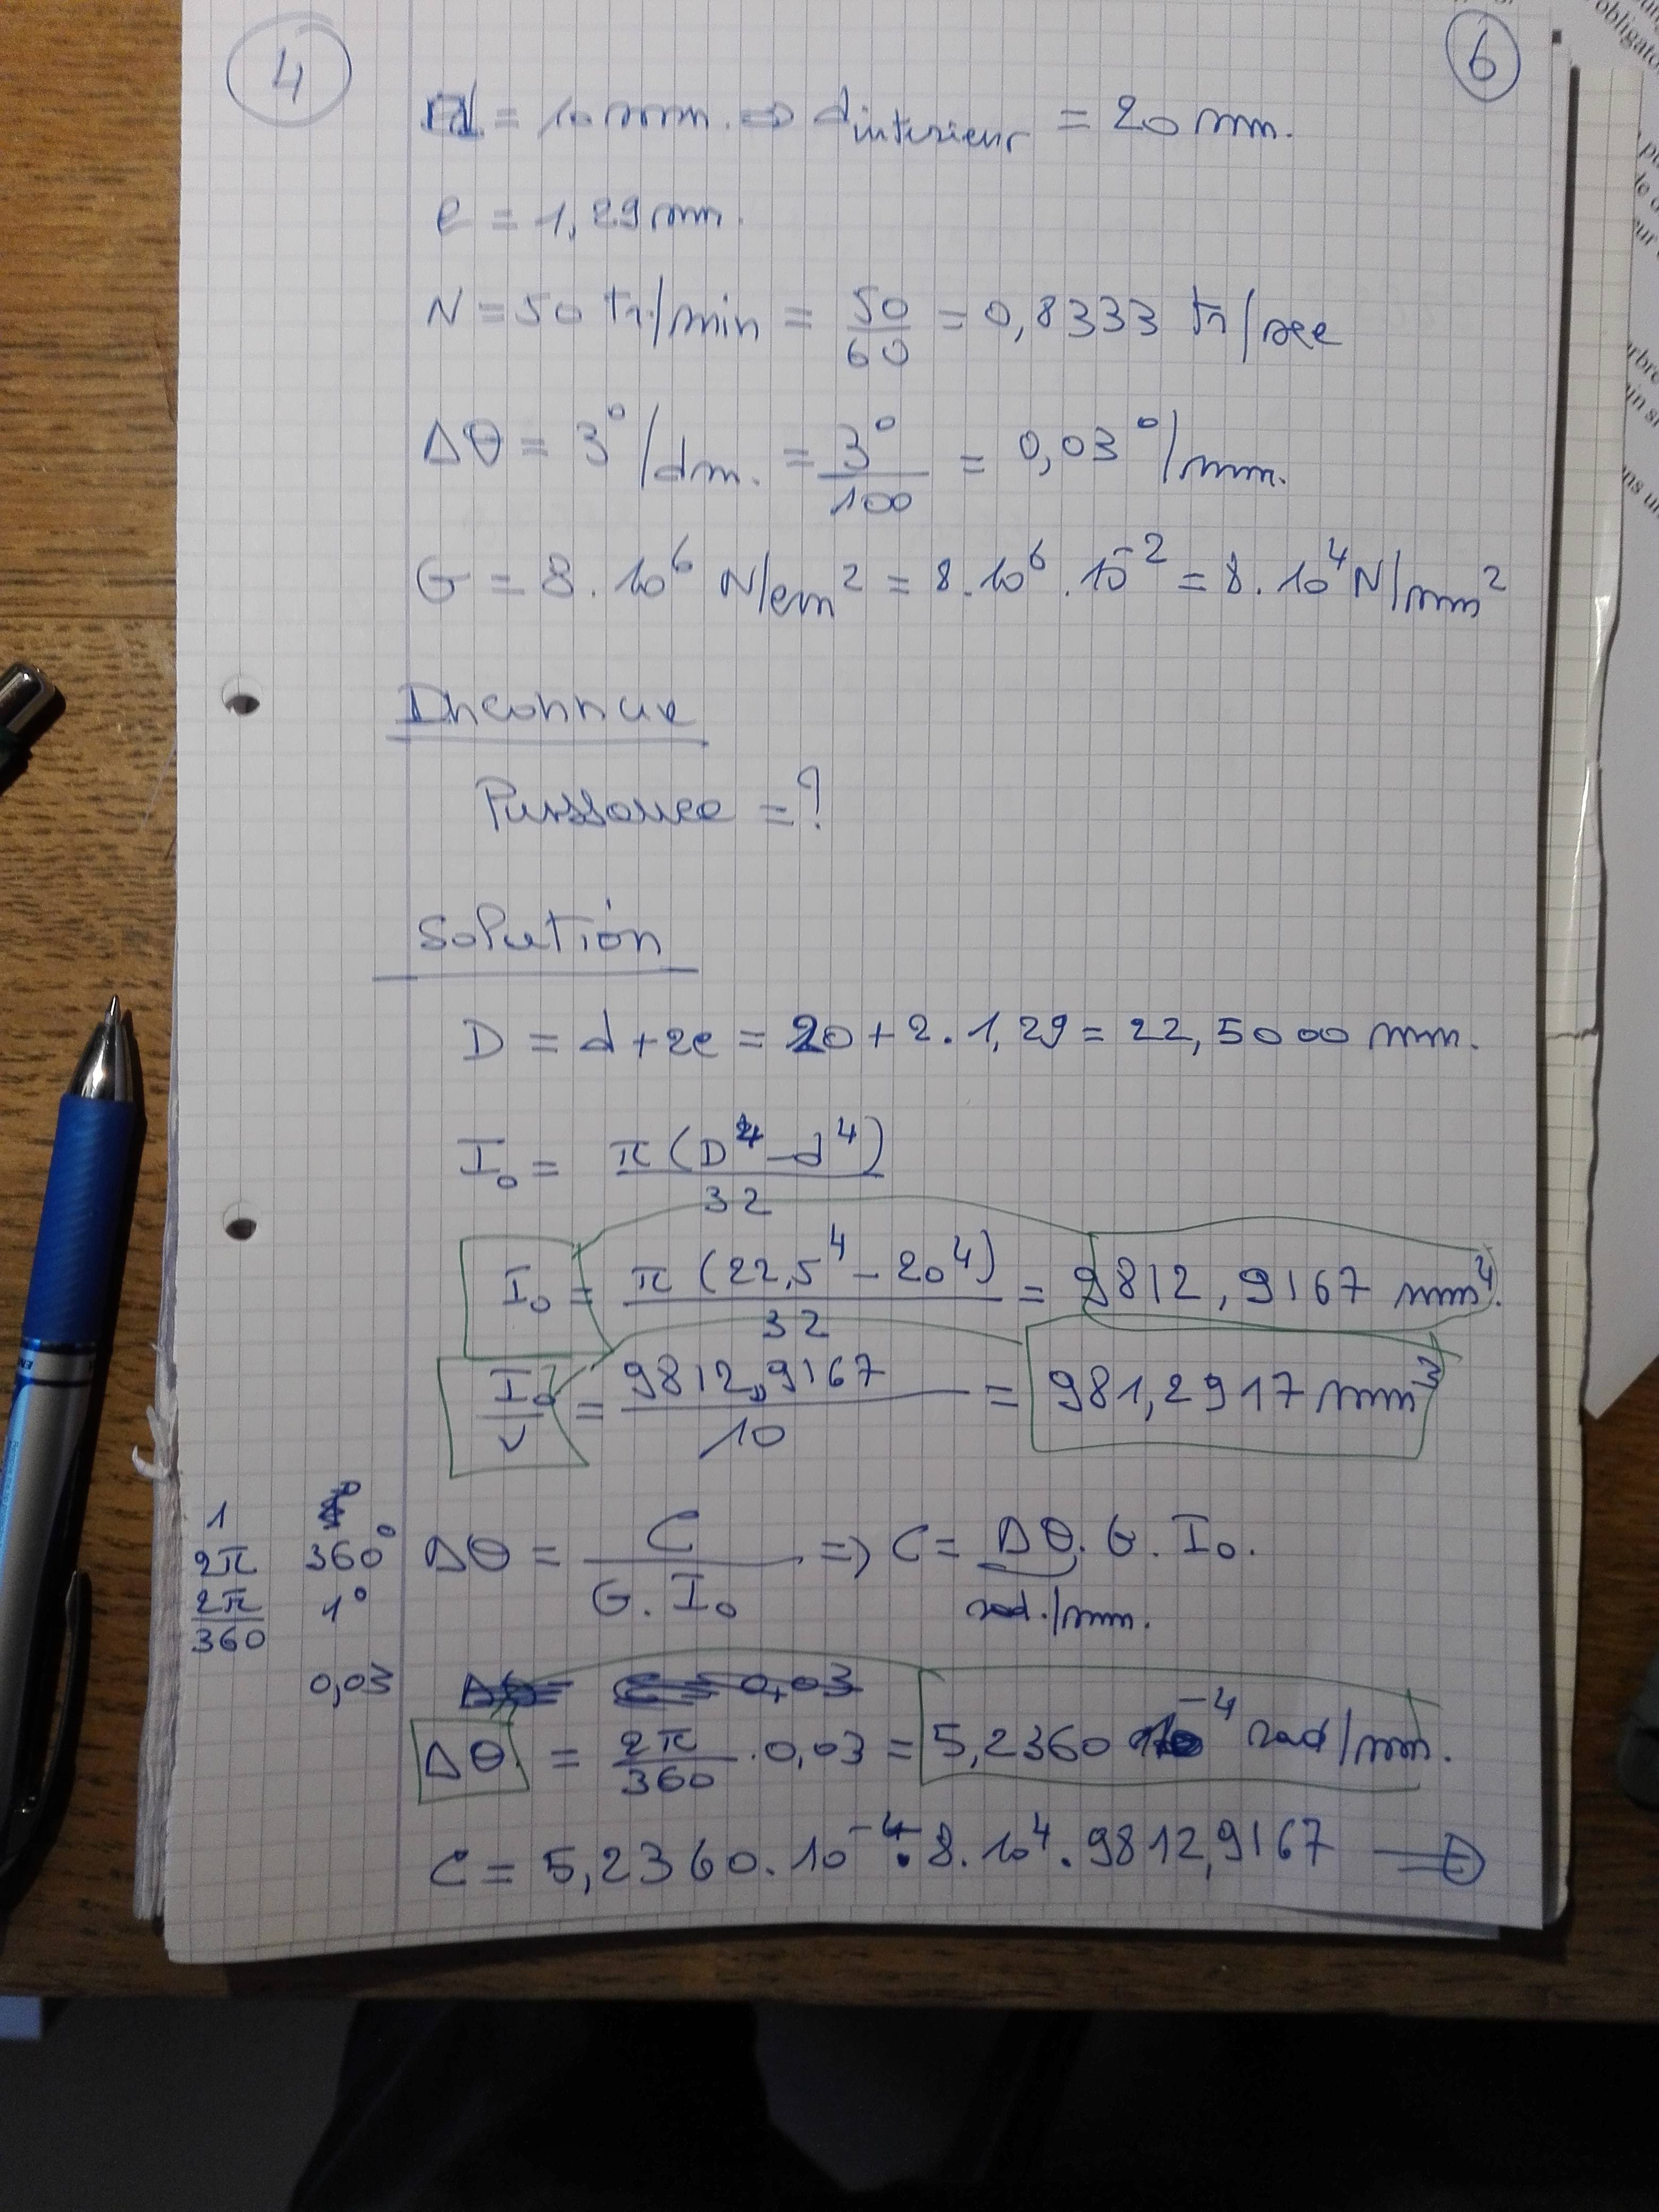 4
6
= 10 mm. => d intérieur = 20 mm.
e = 1,29 mm.
N = 50 tr/min = 50/60 = 0,8333 tr/sec
Δθ = 3°/dm. = 3°/100 = 0,03 °/mm.
G = 8.10⁶ N/cm² = 8.10⁶.10⁻² = 8.10⁴ N/mm²
Inconnue
Puissance = ?
Solution
D = d+2e = 20+2.1,29 = 22,5000 mm.
I₀ = π(D⁴-d⁴)/32
I₀ = π(22,5⁴-20⁴)/32 = 9812,9167 mm⁴.
I₀/v = 9812,9167/10 = 981,2917 mm³
1
2π 360°
2π/360 1°
0,03
Δθ = C/(G.I₀) => C = Δθ.G.I₀.
rad./mm.
0,03
Δθ = 2π/360 .0,03 = 5,2360 10⁻⁴ rad/mm.
C = 5,2360.10⁻⁴.8.10⁴.9812,9167 =>